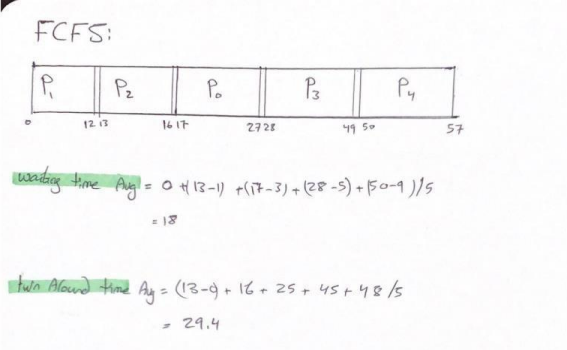 FCFS:
P₁ P₂ P₀ P₃ P₄
0 12 13 16 17 27 28 49 50 57
waiting time Avg = 0 + (13-1) + (17-3) + (28-5) + (50-9)/5
= 18
turn Around time Avg = (13-0) + 16 + 25 + 45 + 48 /5
= 29.4